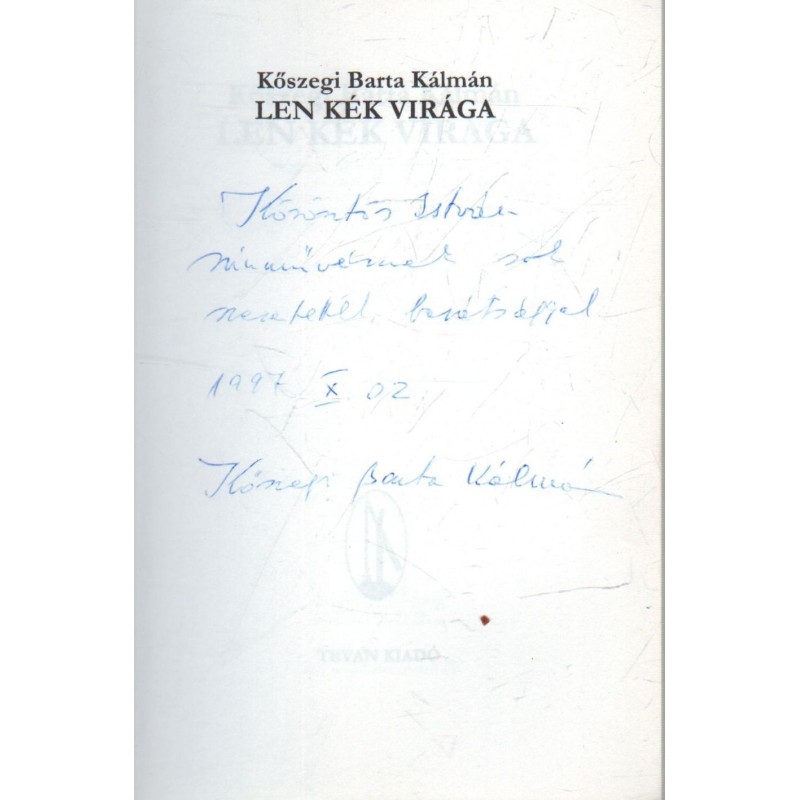 Kőszegi Barta Kálmán
LEN KÉK VIRÁGA
Köröntös István
színművésznek sok
szeretettel, barátsággal
1997 X 02.
Kőszegi Barta Kálmán
TEVAN KIADÓ